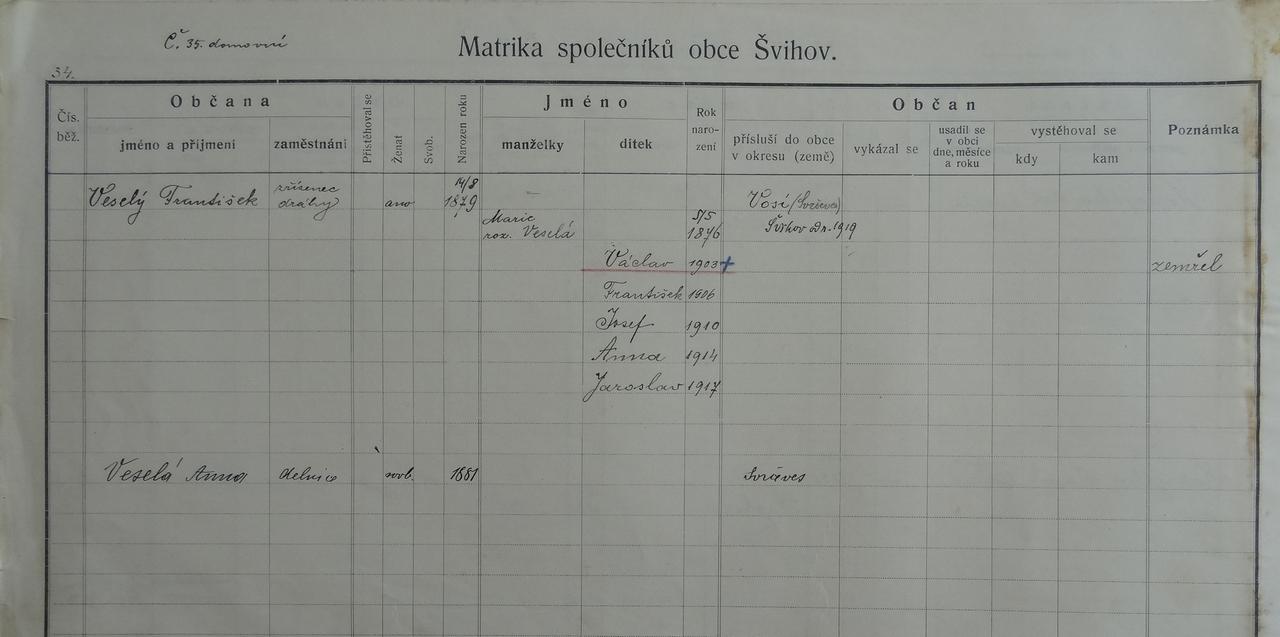 Č. 35. domovní
Matrika společníků obce Švihov.
34.
Čís. běž.
Občana
jméno a příjmení
zaměstnání
Přistěhoval se
Ženat
Svob.
Narozen roku
Jméno
manželky
dítek
Rok naro- zení
Občan
přísluší do obce v okresu (země)
vykázal se
usadil se v obci dne, měsíce a roku
vystěhoval se
kdy
kam
Poznámka
Veselý František zřízenec dráhy ano 14/8 1879 Vosí (Svrčeves)
Marie roz. Veselá 5/5 1876 Švihov od r. 1919
Václav 1903 + zemřel
František 1906
Josef 1910
Anna 1914
Jaroslav 1917
Veselá Anna delnice svob. 1881 Svrčeves